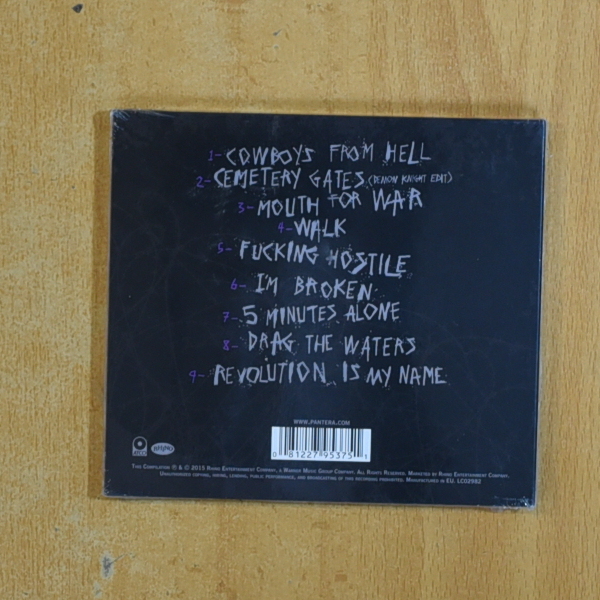 1- COWBOYS FROM HELL
2- CEMETERY GATES (DEMON KNIGHT EDIT)
3- MOUTH FOR WAR
4- WALK
5- FUCKING HOSTILE
6- I'M BROKEN
7- 5 MINUTES ALONE
8- DRAG THE WATERS
9- REVOLUTION IS MY NAME
WWW.PANTERA.COM
0 81227 95375 1
This Compilation ℗ & © 2015 Rhino Entertainment Company, a Warner Music Group Company. All Rights Reserved. Marketed by Rhino Entertainment Company.
Unauthorized copying, hiring, lending, public performance, and broadcasting of this recording prohibited. Manufactured in EU. LC02982